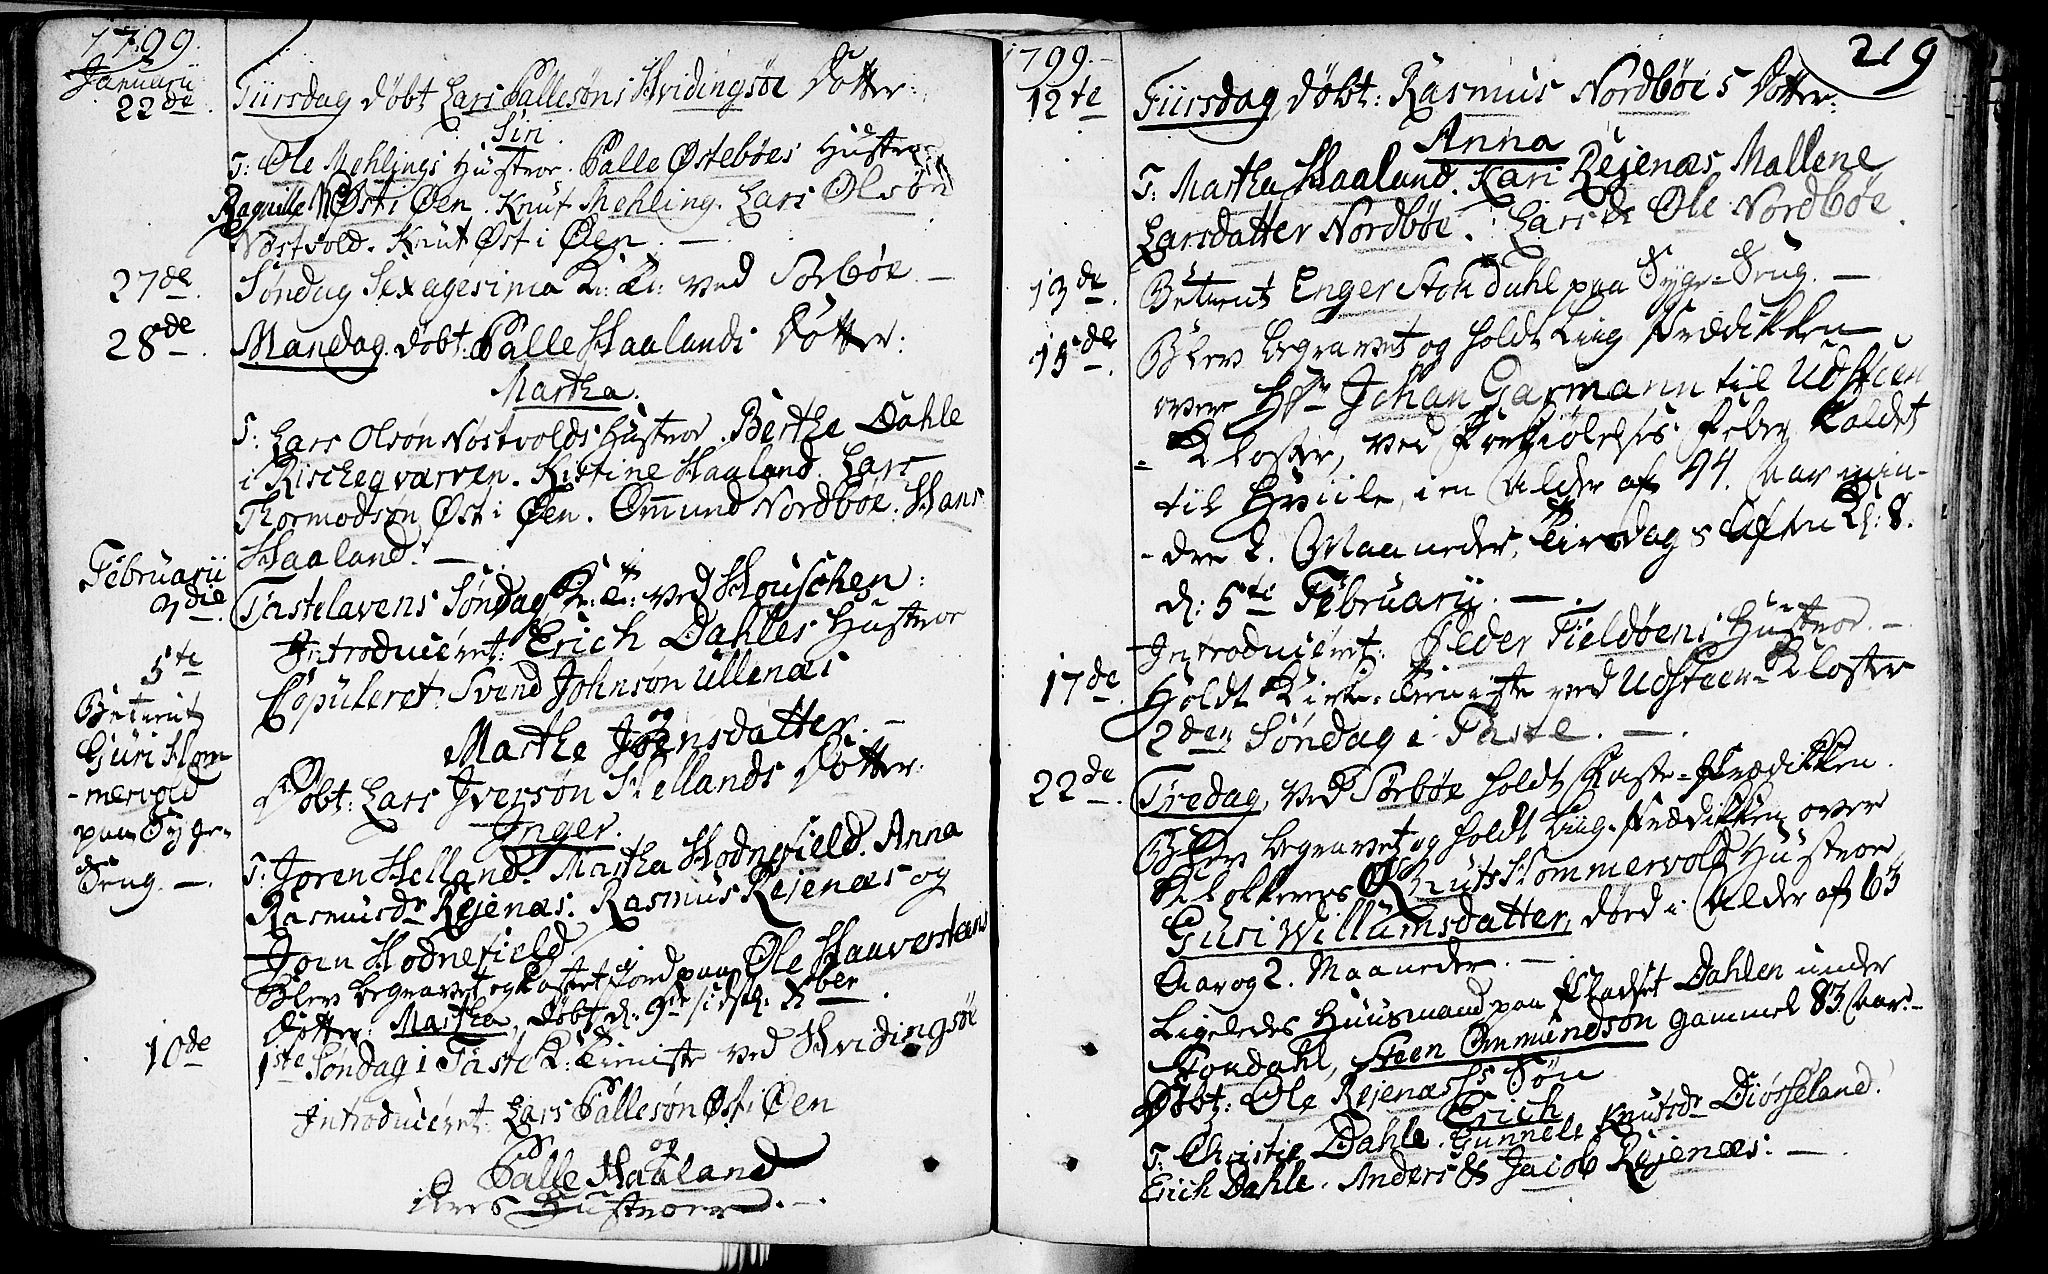 1799.
Januarii
22de. Tiirsdag døbt Lars Pallesøns Hvidingsøe Dotter:
Siri
T: Ole Mehlings Hustroe. Palle Østebøes Hustroe
Raguille Øst i Øen. Knut Mehling. Lars Olsøn
Nøstvold. Knut Øst i Øen. —
27de. Søndag Sexagesima K: T: ved Sørbøe —
28de. Mandag døbt Palle Haalands Dotter:
Martha.
T: Lars Olsøn Nøstvolds Hustroe. Berthe Dahle
i Rischeqvarven. Kistine Haaland. Lars
Thormodsøn Øst i Øen. Ommund Nordbøe. Hans
Haaland. —
Februarii
3die. Fastelavens Søndag K: T: ved Housschen:
Introduceret: Erich Dahles Hustroe
Copuleret: Svend Johnsøn Ullenæs
og
Marthe Joensdatter. —
5te
Betient
Guri Hom-
-mervold
paa Syge-
Seng. —.
Døbt: Lars Iversøn Hellands Dotter:
Inger.
T: Joren Helland. Martha Hodnefield. Anna
Rasmusdr Rejenæs. Rasmus Rejenæs og
Joen Hodnefield.
Blev begravet og kastet Jord paa Ole Haaversteens
Dotter: Martha, døbt d: 9de sidstl: Xber.
10de 1ste Søndag i Faste K: Tieniste ved Hvidingsøe
Introduceret: Lars Pallesøn Øst i Øen
og
Palle Haaland
deres Hustroer. —.
1799. 219
12te Tiirsdag, døbt: Rasmus Nordbøes Dotter:
Anna
T: Martha Haaland. Kari Rejenæs Mallene
Larsdatter Nordbøe. Lars & Ole Nordbøe.
13de. Betient Enger Stondahl paa Syge-Seng. —
15de. Blev begravet og holdt Liig Prædikken
over Hr Johan Garmann til Udsteen
-Kloster, ved Forkiølelses Feber kaldet
til Hviile, i en Alder af 44. Aar min-
-dre 2. Maaneder, Tirsdag Aften Kl: 8.
d: 5te Februarii. —.
Introduceret: Peder Fieldøens Hustroe. —
17de. Holdt Kirke-Tieniste ved Udsteen-Kloster
2den Søndag i Faste. —.
22de. Fredag, ved Sørbøe holdt Faste-Prædikken.
Blev begravet og holdt Liig-Prædikken over
Klokkerens Knuts Hommervold Hustroe
Guri Willumsdatter, død i Alder af 63
Aar og 2. Maaneder. —.
Ligeledes Huusmand paa Pladset Dahlen under
Stondahl, Steen Ommundsøn gammel 83 Aar. —
Døbt: Ole Rejenæses Søn
Erich
T: Christie Dahle. Gunnele Knutsdr Diøsseland.
Erich Dahle. Anders & Jacob Rejenæs. —.